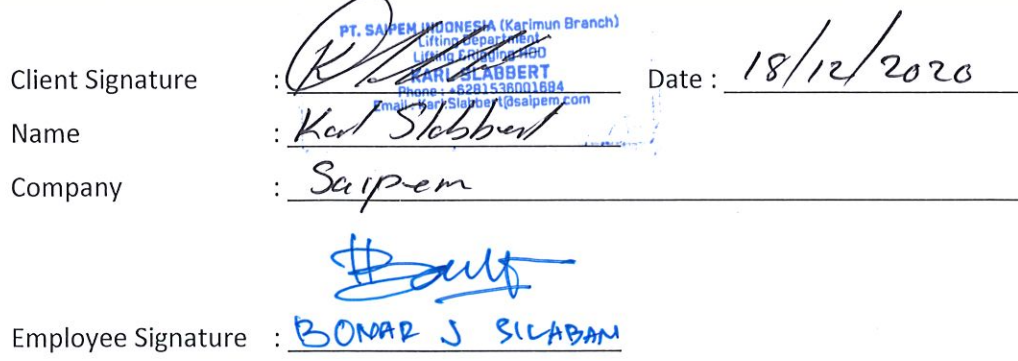 PT. SAIPEM INDONESIA (Karimun Branch)
Lifting Department
Lifting & Rigging HOD
KARL SLABBERT
Phone : +6281536001684
Email : Karl.Slabbert@saipem.com
Client Signature :
Date : 18/12/2020
Name : Karl Slabbert
Company : Saipem
Employee Signature : BOMAR J SILABAN